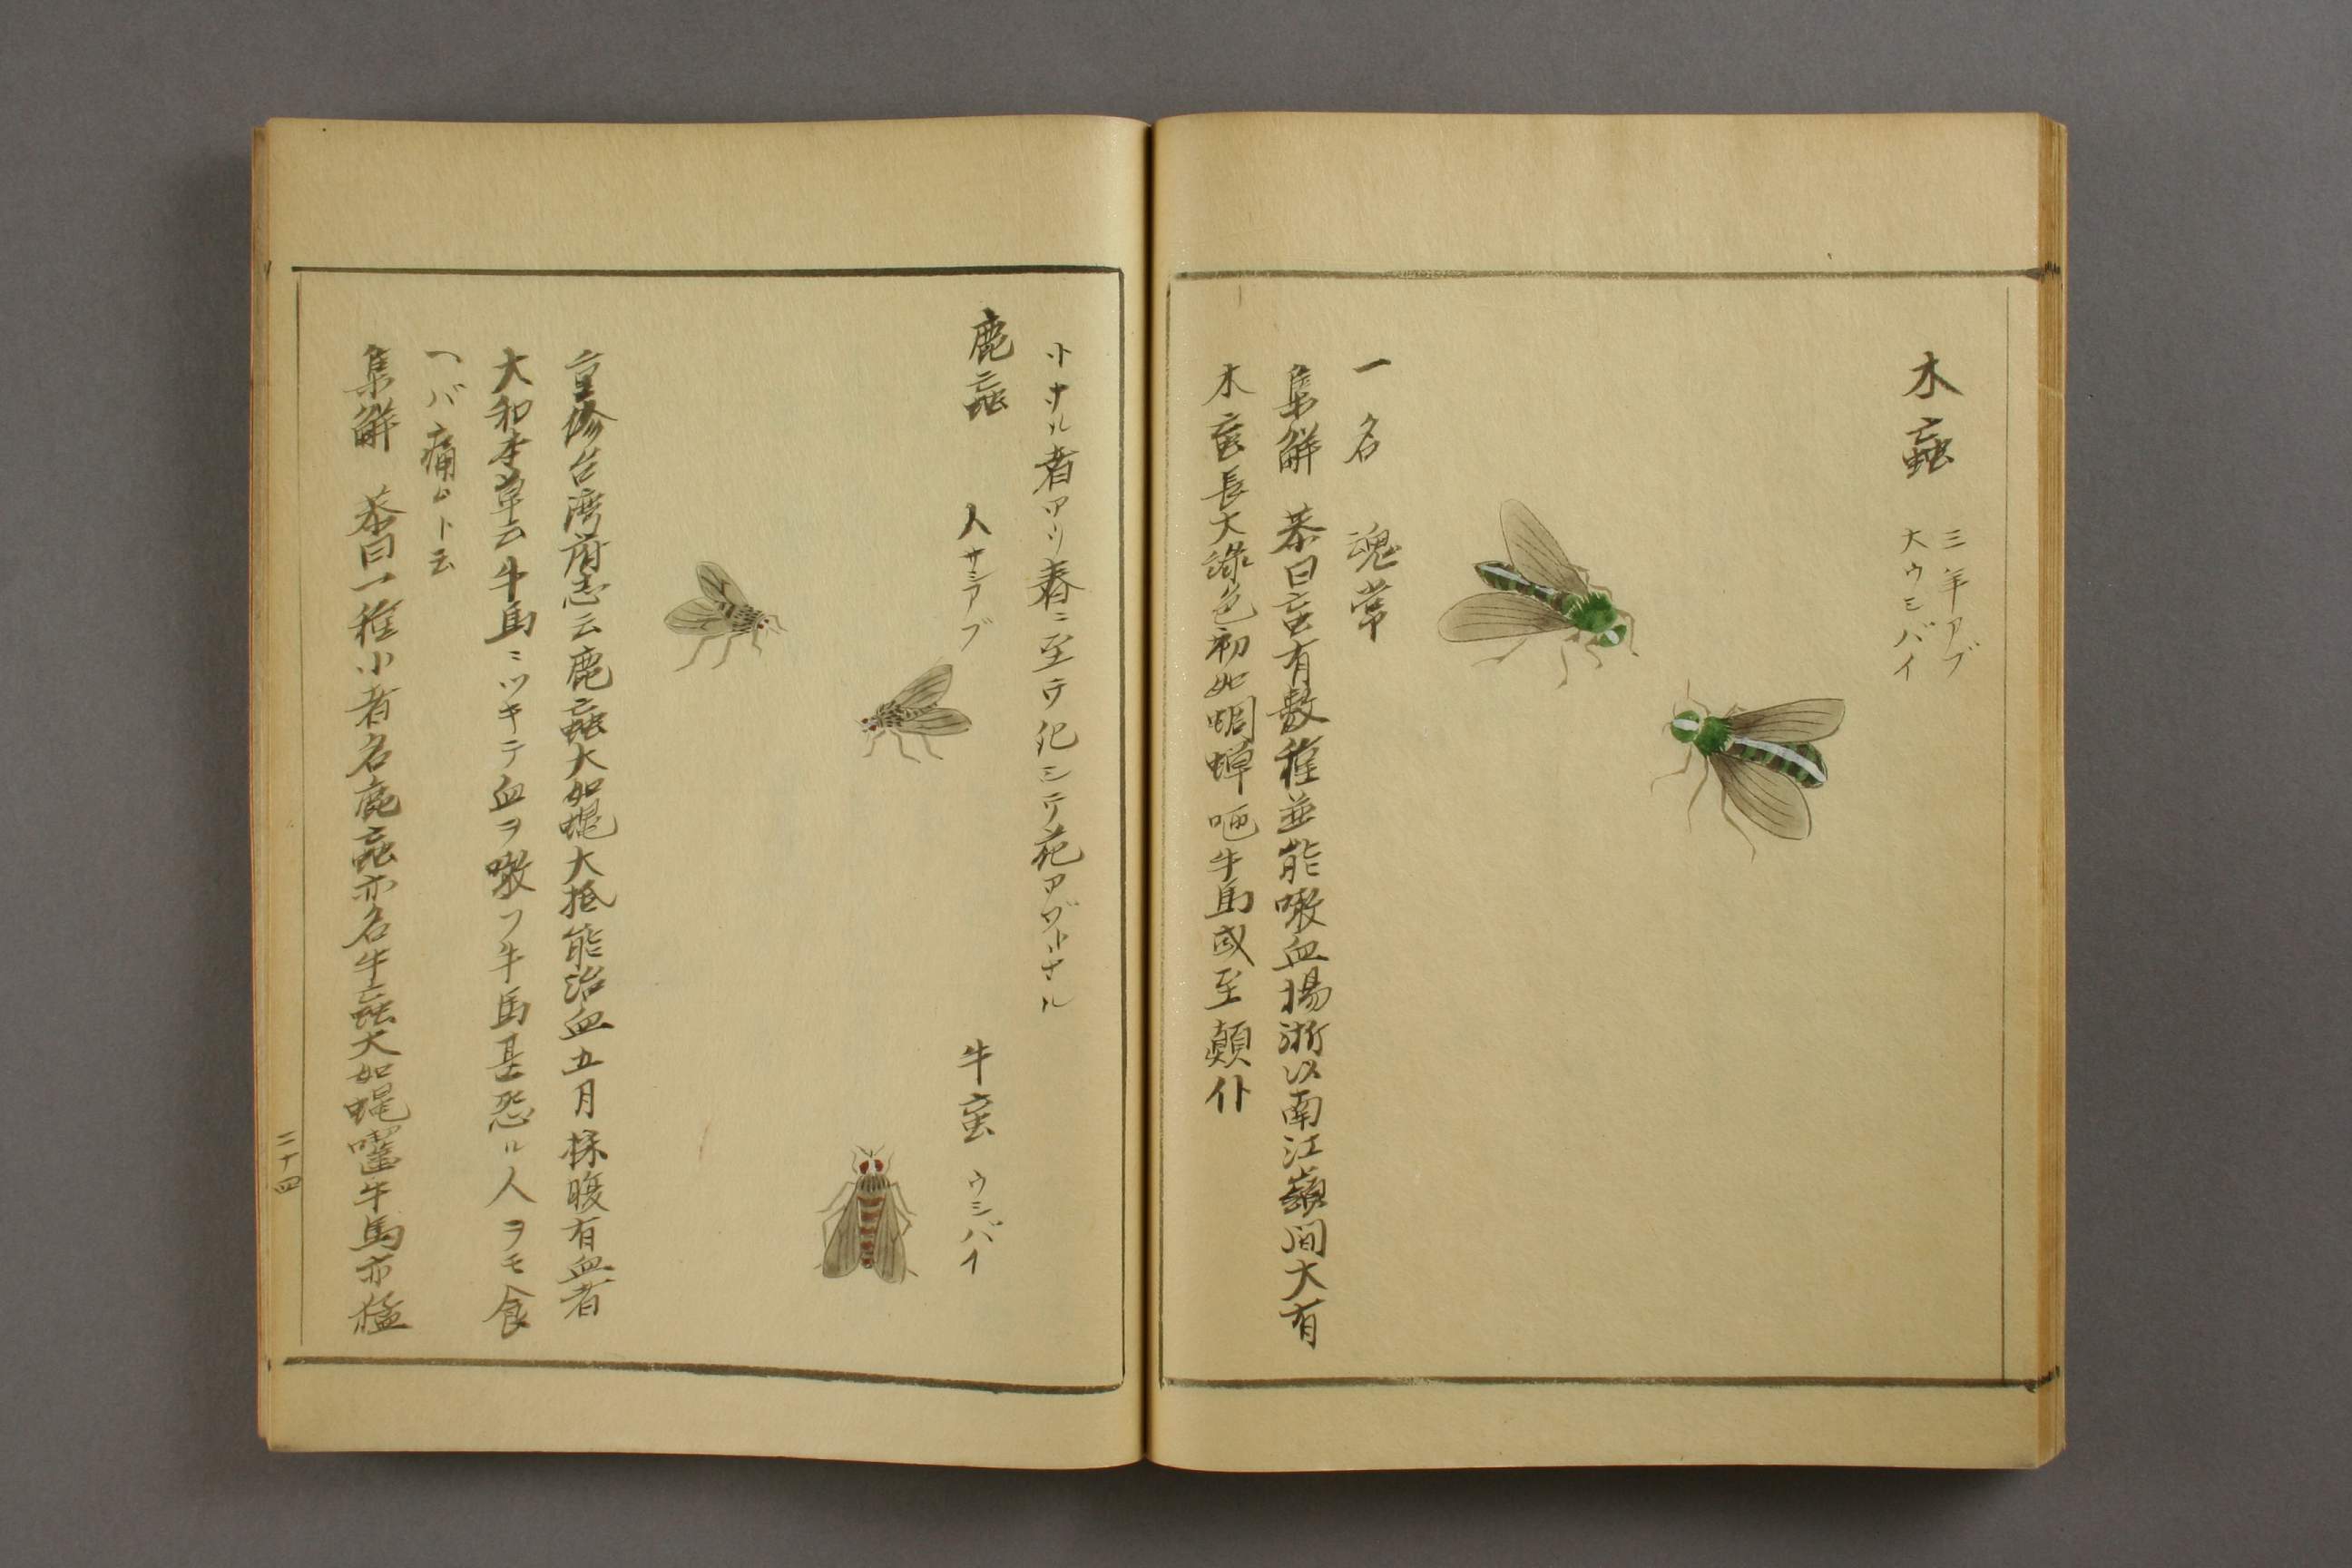 木蝱
三年アブ
大ウシバイ
一名 魂常
集解 恭曰䖟有數種並能噉血揚浙以南江嶺間大有
木䖟長大綠色初如蜩蟬咂牛馬或至顛仆
トナル者アリ春ニ至テ化シテ花アブトナル
鹿蝱 人サシアブ
牛䖟 ウシバイ
重修台湾府志云鹿蝱大如蝿大抵能治血五月採腹有血者
大和本草云牛馬ニツキテ血ヲ噉フ牛馬甚恐ル人ヲモ食
ヘバ痛ムト云
集解 恭曰一種小者名鹿蝱亦名牛蝱大如蝿囓牛馬亦猛
二十四